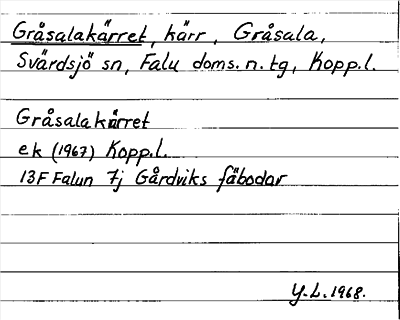 Gråsalakärret, kärr, Gråsala,
Svärdsjö sn, Falu doms. n. tg, Kopp.l.
Gråsalakärret
ek (1967) Kopp.l.
13F Falun 7j Gårdviks fäbodar
Y.L. 1968.